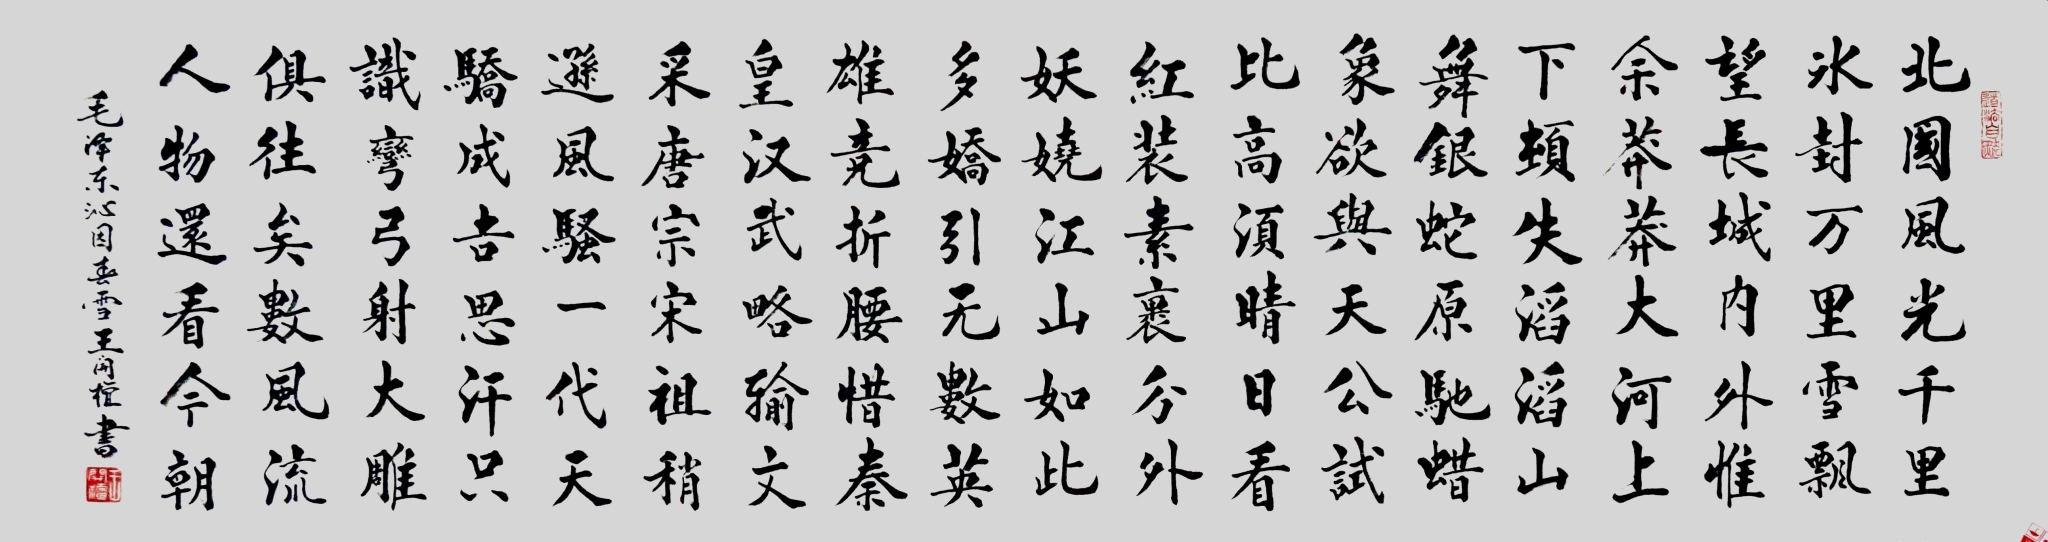 北國風光千里
氷封万里雪飄
望長城内外惟
余莽莽大河上
下頓失滔滔山
舞銀蛇原馳蜡
象欲與天公試
比高須晴日看
紅装素裹分外
妖嬈江山如此
多嬌引无數英
雄竞折腰惜秦
皇汉武略输文
采唐宗宋祖稍
遜風騷一代天
驕成吉思汗只
識彎弓射大雕
俱往矣數風流
人物還看今朝
毛泽东沁园春雪王開書